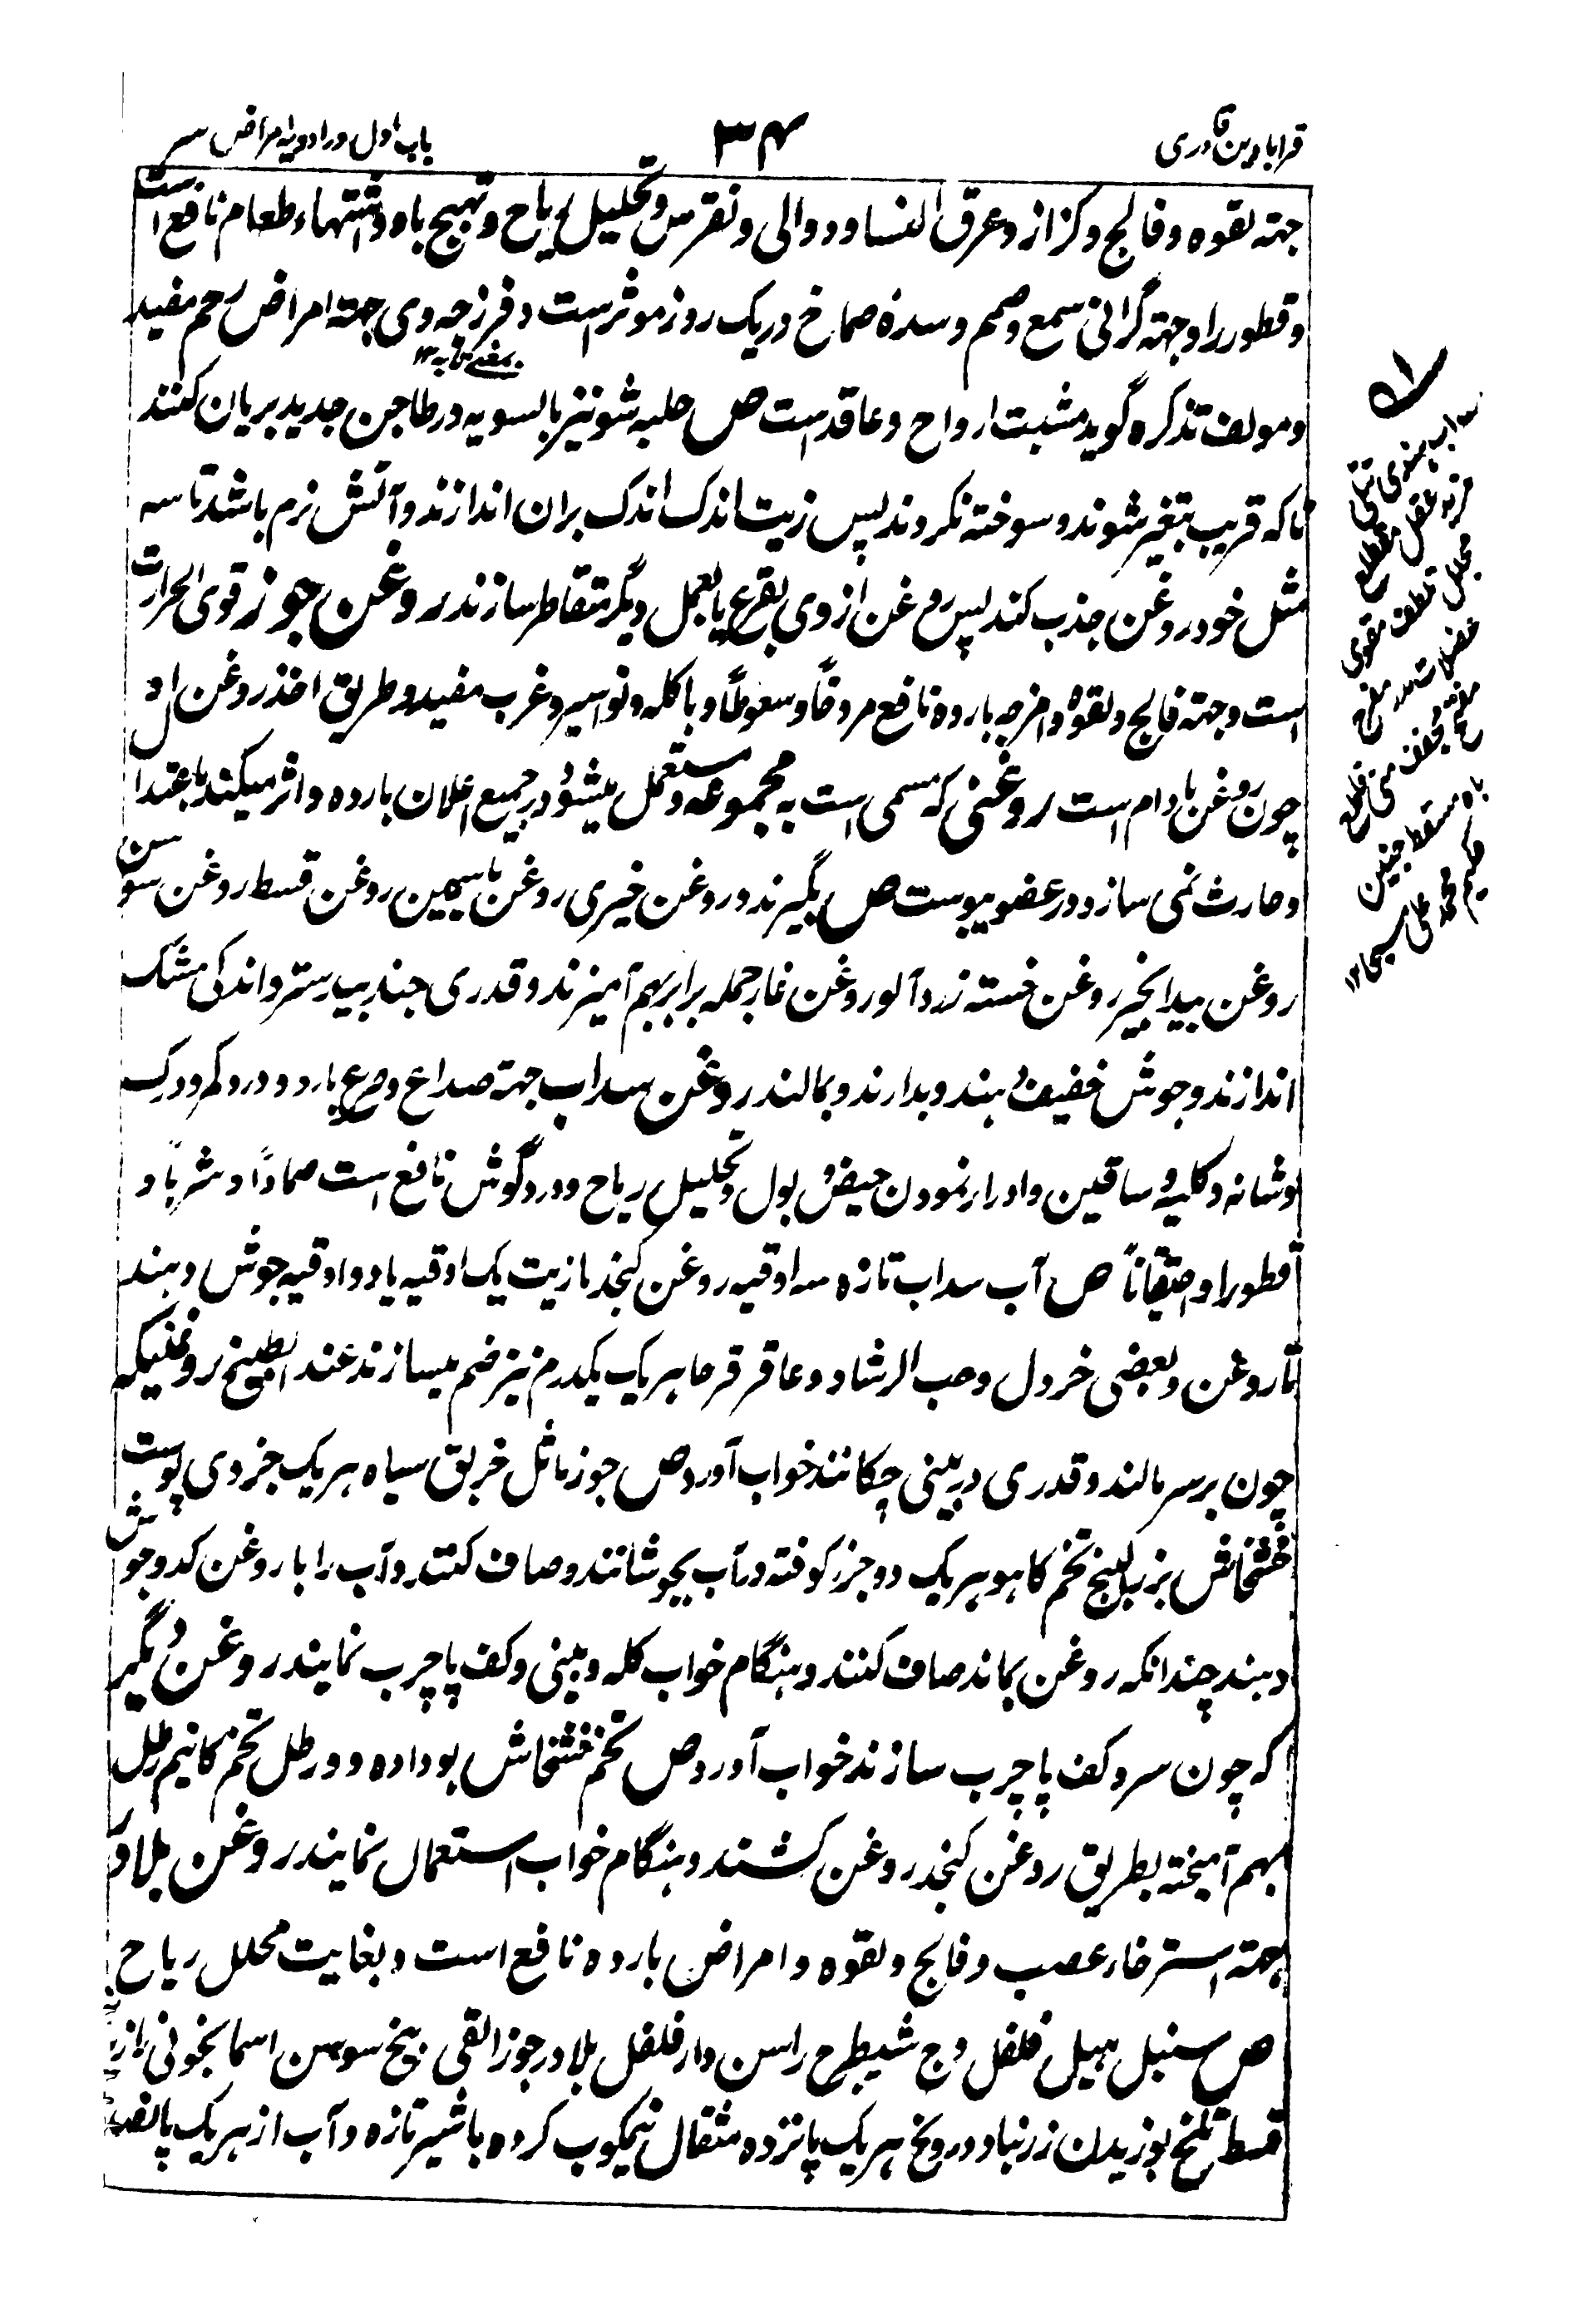 قرابادین قادری
۳۴
باب اول در ادویه امراض سر
جهته لقوه و فالج و کزاز و عرق النسا و دوالی و نقرس و تحلیل ریاح و تهیج باه و اشتهاء طعام نافع است
و قطور او جهته گرانی سمع و صمم و سدهٔ صماخ در یک روز موثر است و فرزجه وی جهته امراض رحم مفید
و مولف تذکره گوید مثبت ارواح و عاقد است ص حلبه شونیز بالسویه در طاجن جدید بریان کنند
تا که قریب بتغیر شوند و سوخته نگردند پس زیت اندک اندک بران اندازند و آتش نرم باشد تا سه
مثل خود روغن جذب کند پس روغن از وی بقرع یا بعمل دیگر متقاطر سازند روغن جوز قوی الحرارت
است و جهته فالج و لقوه و امزجه بارده نافع مروخاً و سعوطاً و با کله و نواسیر و غرب مفید و طریق اخذ روغن او
چون روغن بادام است روغنی که مسمی است به مجموعه و مستعمل میشود در جمیع اعلان بارده و اثر میکند باعتدا
و حارث نمی سازد در عضو یبوست ص بگیرند روغن خیری روغن یاسمین روغن قسط روغن سوسن
روغن بیدانجیر روغن خسته زردآلو روغن غار جمله برابر بهم آمیزند و قدری جندبیدستر و اندکی مشک
اندازند و جوش خفیف دهند و بدارند و بمالند روغن سداب جهته صداع و صرع بارد و درد کمر و ورک
و شانه و کلیه و ساقین و ادرار نمودن حیض و بول و تحلیل ریاح و درد گوش نافع است ضماداً و شرباً و
قطورا و احتقاناً ص آب سداب تازه سه اوقیه روغن کنجد یا زیت یک اوقیه یا دو اوقیه جوش دهند
تا روغن و بعضی خردل و حب الرشاد و عاقرقرحا هر یک یکدرم نیز ضم میسازند عند الطبیخ روغنیکه
چون بر سر مالند و قدری در بینی چکانند خواب آورد ص جوز ماثل خربق سیاه هر یک جزوی پوست
خشخاش بزرالبنج تخم کاهو هر یک دو جزء کوفته در آب بجوشانند و صاف کنند و آب را با روغن کدو جوش
دهند چندانکه روغن بماند صاف کنند و هنگام خواب کله و بینی و کف پا چرب نمایند روغن دیگر
که چون سر و کف پا چرب سازند خواب آورد ص تخم خشخاش بوداده دو رطل تخم کا نیم رطل
بهم آمیخته بطریق روغن کنجد روغن کشند و هنگام خواب استعمال نمایند روغن بلادر
جهته استرخاء عصب و فالج و لقوه و امراض بارده نافع است و بغایت محلل ریاح
ص سنبل هیل فلفل وج شیطرج راسن دارفلفل بلادر جوز القی بیخ سوسن اسمانجونی
قسط تلخ بوزیدان زرنباد درونج هر یک پانزده مثقال نیمکوب کرده با شیر تازه و آب از هر یک پانصد